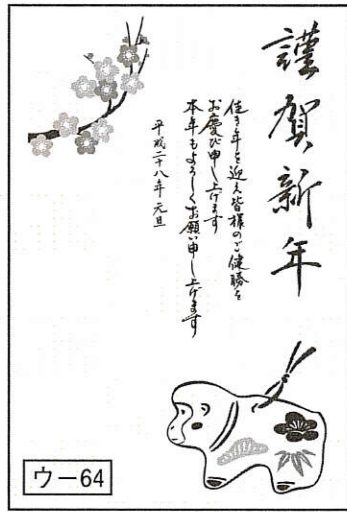 謹賀新年
佳き年を迎え皆様のご健勝を
お慶び申し上げます
本年もよろしくお願い申し上げます
平成二十八年 元旦
ウー64